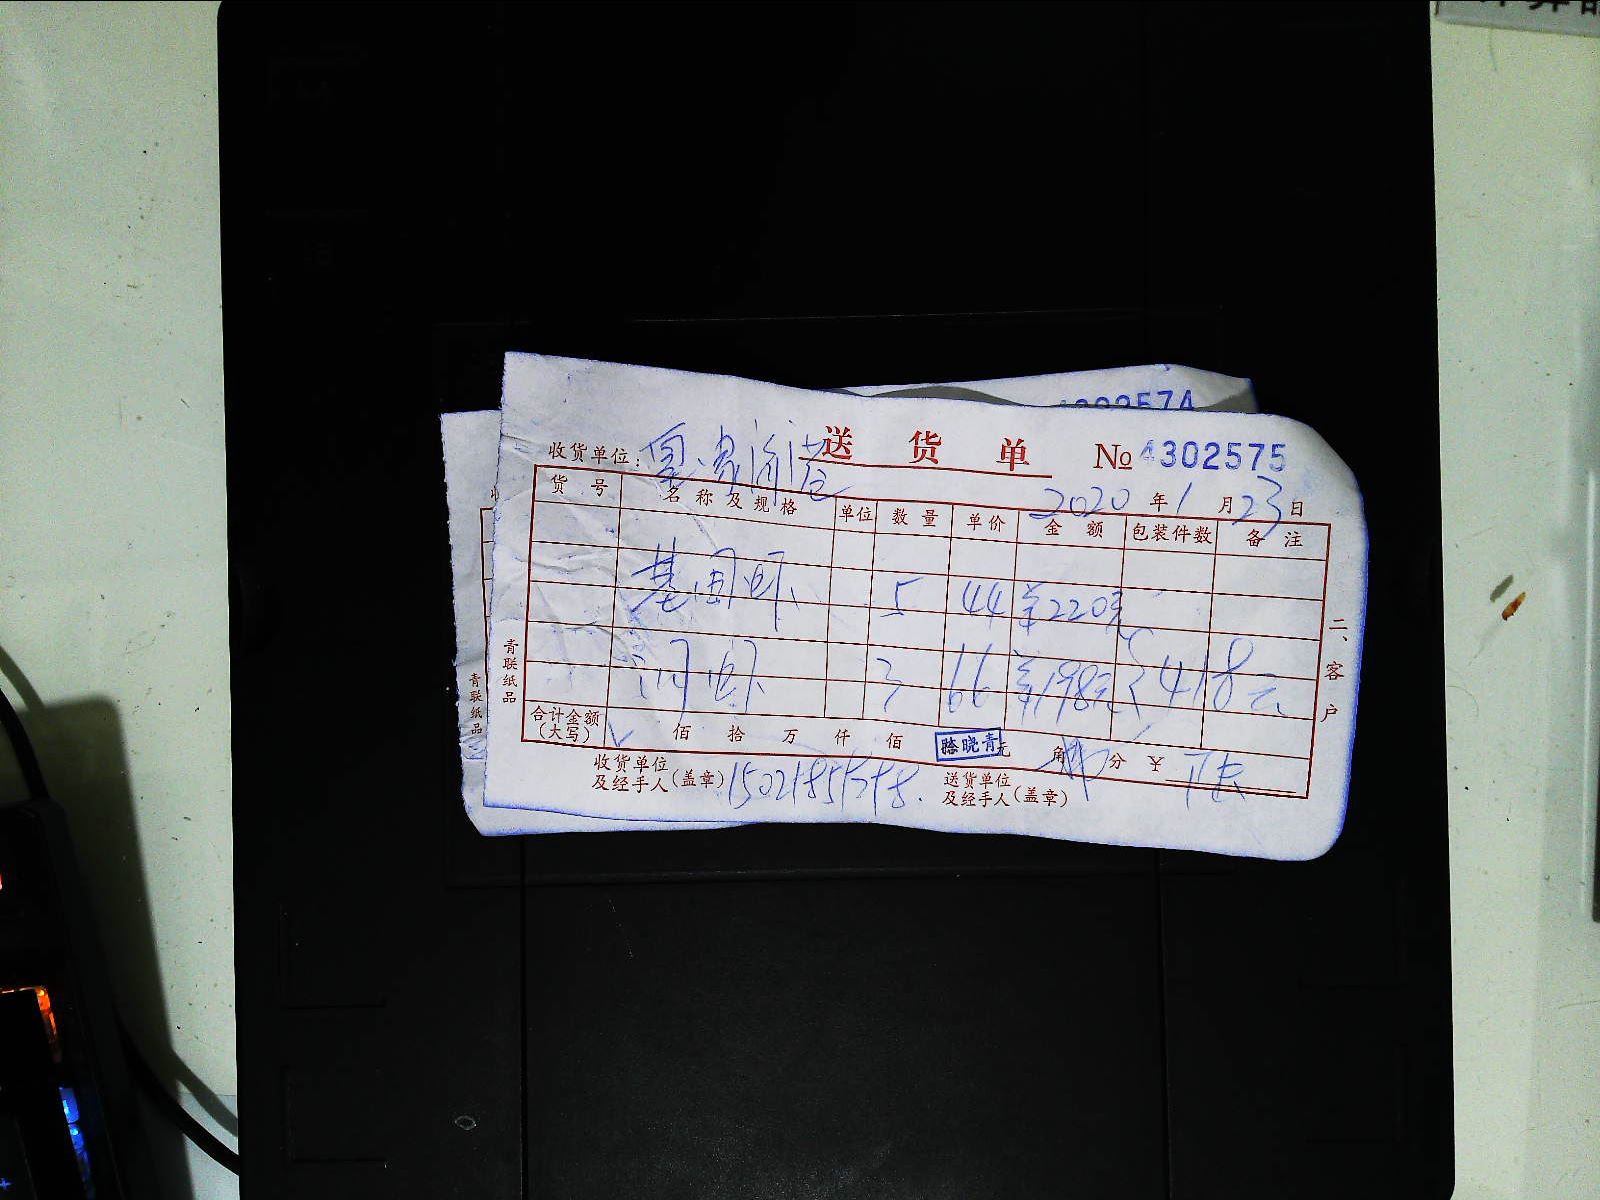 4302574
送货单 № 4302575
收货单位：
2020年1月23日
货号 名称及规格 单位 数量 单价 金额 包装件数 备注
基围虾 5 44 ¥220元
河虾 3 66 ¥198元 418元
合计金额（大写） 佰 拾 万 仟 佰 元 角 分 ¥
收货单位及经手人（盖章）
送货单位及经手人（盖章）
二、客户
青联纸品
青联纸品